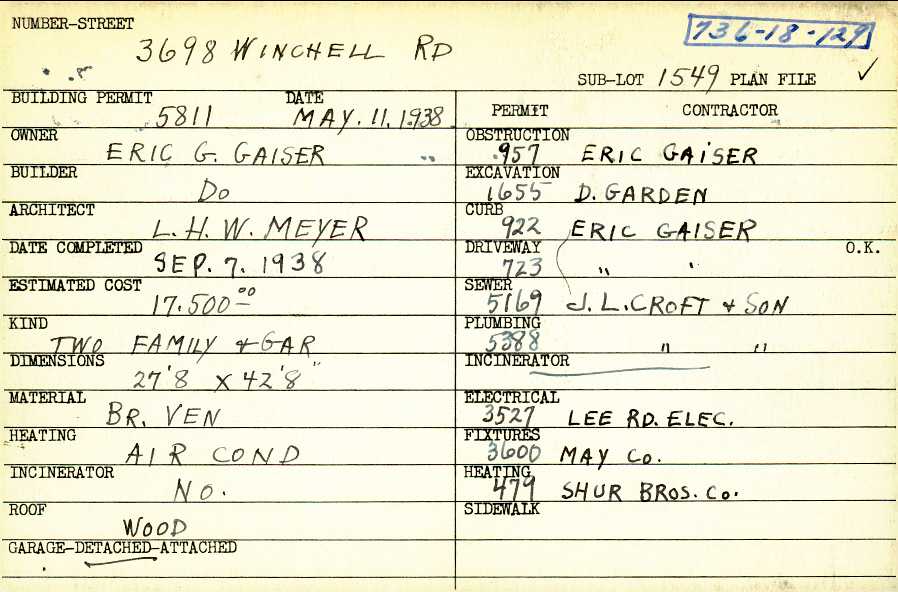 NUMBER-STREET
3698 WINCHELL RD
736-18-129
SUB-LOT 1549 PLAN FILE ✓
BUILDING PERMIT DATE
5811 MAY. 11. 1938
OWNER
ERIC G. GAISER
BUILDER
Do
ARCHITECT
L. H. W. MEYER
DATE COMPLETED
SEP. 7. 1938
ESTIMATED COST
17.500 00
KIND
TWO FAMILY & GAR
DIMENSIONS
27'8 X 42'8"
MATERIAL
BR. VEN
HEATING
AIR COND
INCINERATOR
No.
ROOF
WOOD
GARAGE-DETACHED-ATTACHED
PERMIT CONTRACTOR
OBSTRUCTION
957 ERIC GAISER
EXCAVATION
1655 D. GARDEN
CURB
922 ERIC GAISER
DRIVEWAY O.K.
723 " "
SEWER
5169 J. L. CROFT & SON
PLUMBING
5388 " "
INCINERATOR
ELECTRICAL
3527 LEE RD. ELEC.
FIXTURES
3600 MAY Co.
HEATING
479 SHUR BROS. Co.
SIDEWALK